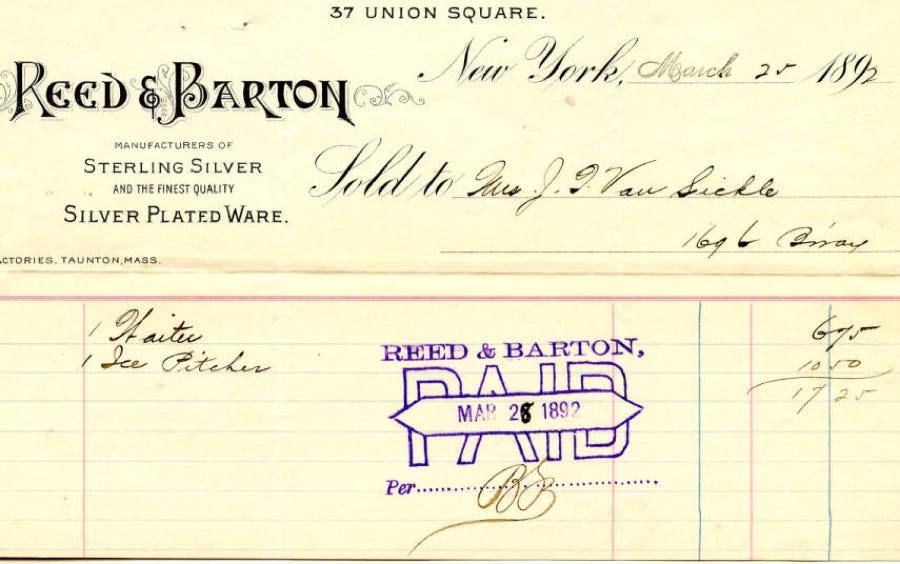 37 UNION SQUARE.
New York, March 25 1892
REED & BARTON
MANUFACTURERS OF
STERLING SILVER
AND THE FINEST QUALITY
SILVER PLATED WARE.
Sold to Mrs J. Van Sickle
1696 B'way
ACTORIES, TAUNTON, MASS.
1 Waiter 675
1 Ice Pitcher 1050
17 25
REED & BARTON,
PAID
MAR 28 1892
Per